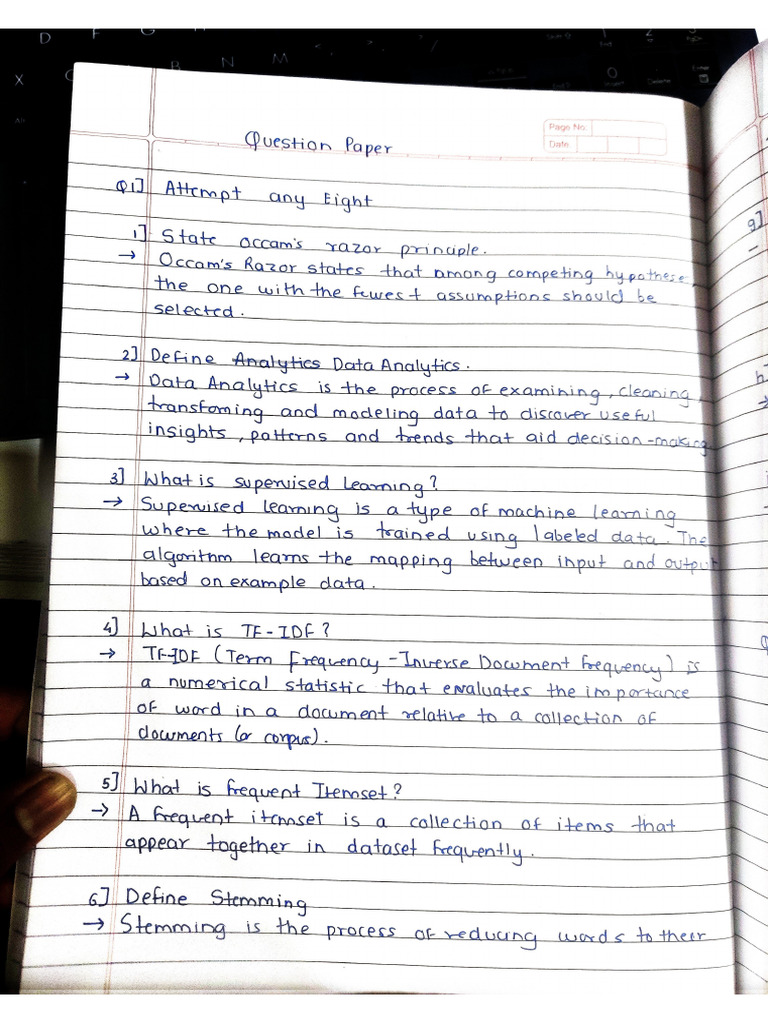 D F G
X C B N M
Alt
Page No.
Date
Question Paper
Q1] Attempt any Eight
1] State occam's razor principle.
→ Occam's Razor states that among competing hypothese,
the one with the fewest assumptions should be
selected.
2] Define Analytics Data Analytics.
→ Data Analytics is the process of examining, cleaning,
transfoming and modeling data to discover useful
insights, patterns and trends that aid decision-making
3] What is supervised Learning?
→ Supervised learning is a type of machine learning
where the model is trained using labeled data. The
algorithm learns the mapping between input and output
based on example data.
4] What is TF-IDF?
→ TF-IDF (Term Frequency-Inverse Document Frequency) is
a numerical statistic that evaluates the importance
of word in a document relative to a collection of
documents (or corpus).
5] What is frequent Itemset?
→ A frequent itemset is a collection of items that
appear together in dataset frequently.
6] Define Stemming
→ Stemming is the process of reducing words to their
g]
h]